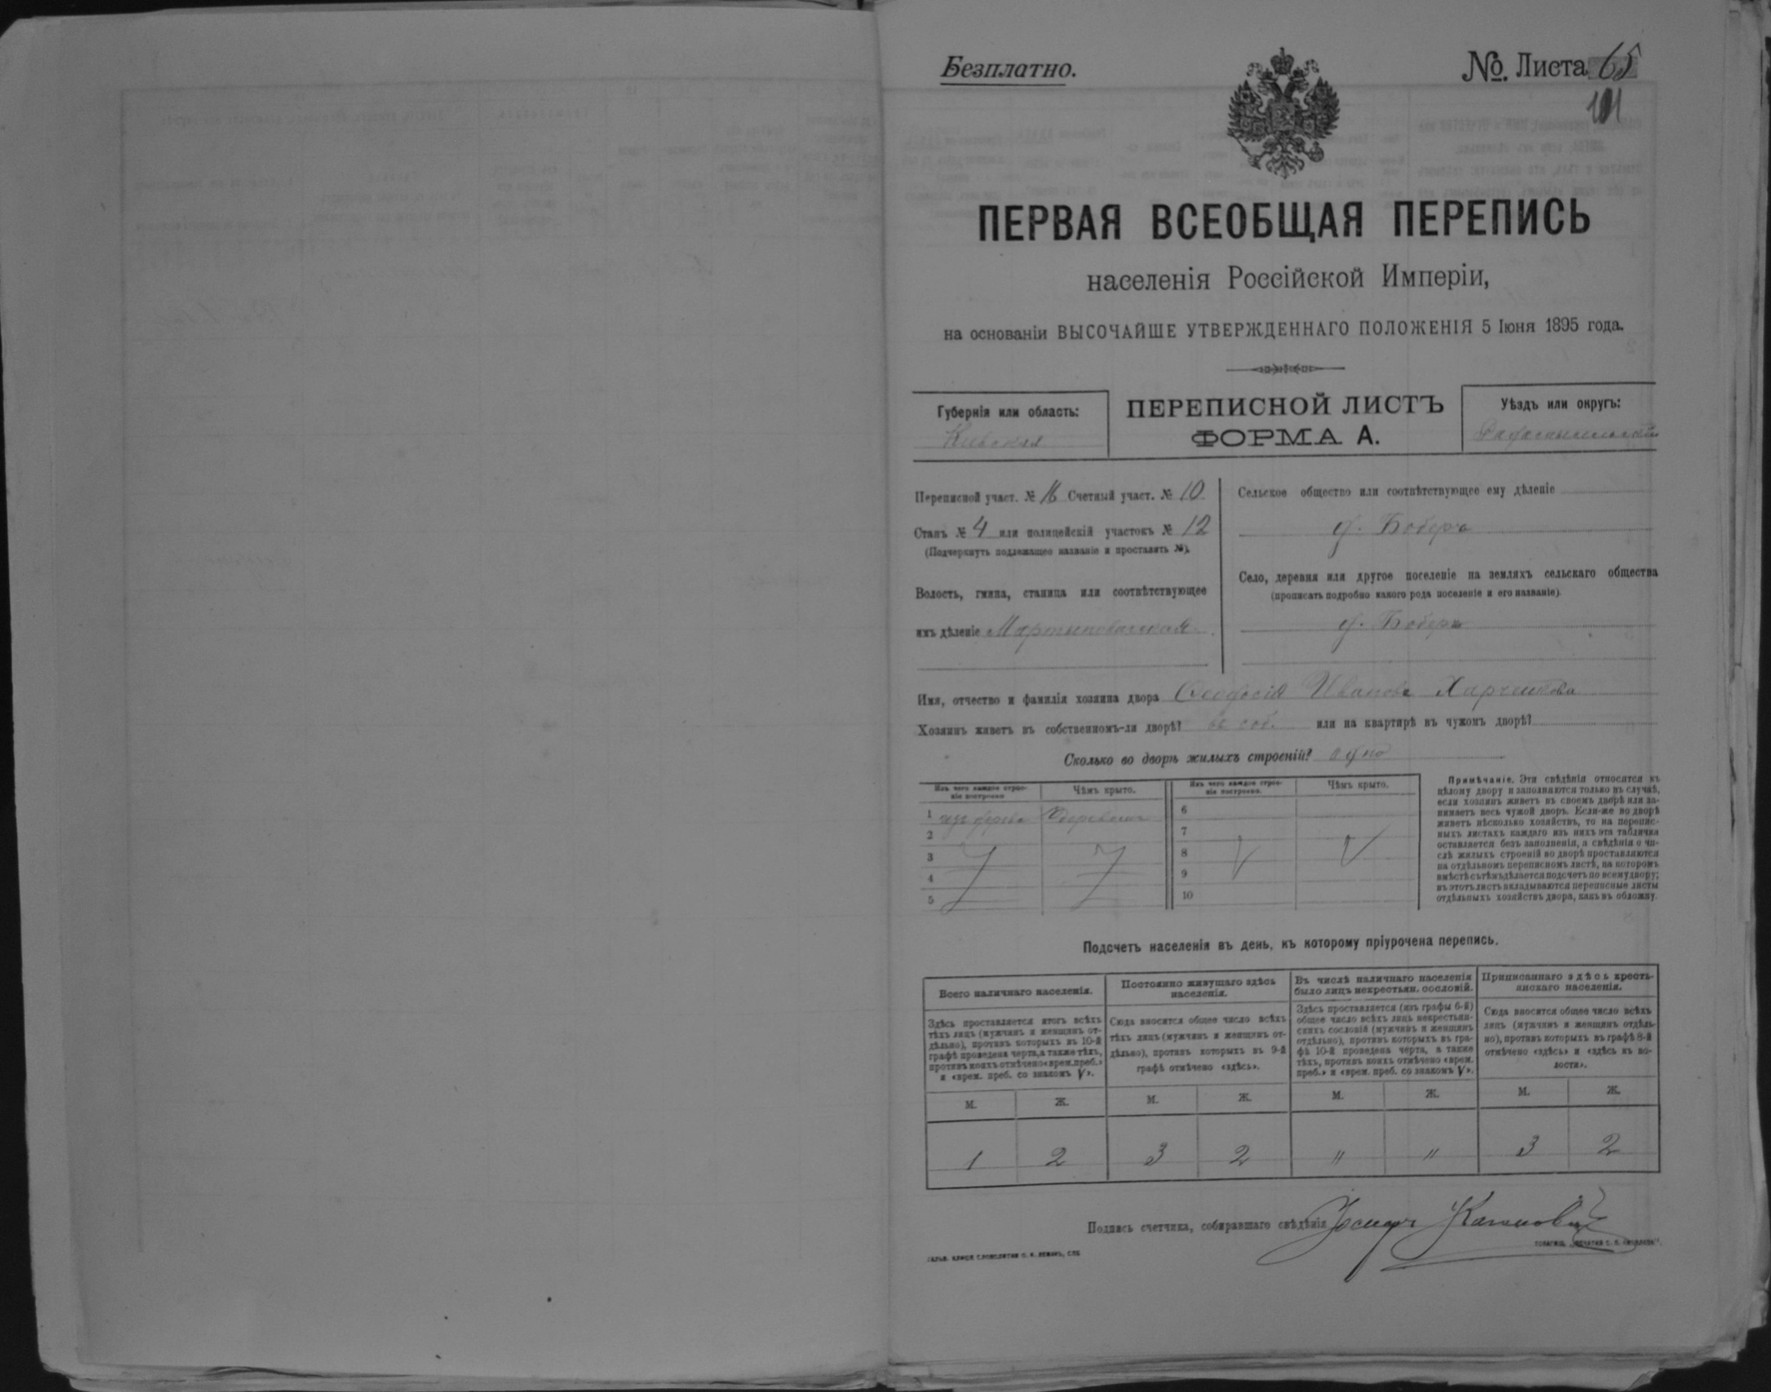 Безплатно.
№ Листа 65
101
ПЕРВАЯ ВСЕОБЩАЯ ПЕРЕПИСЬ
населенія Россійской Имперіи,
на основаніи ВЫСОЧАЙШЕ УТВЕРЖДЕННАГО ПОЛОЖЕНІЯ 5 Іюня 1895 года.
Губернія или область:
Кіевская
ПЕРЕПИСНОЙ ЛИСТЪ
ФОРМА А.
Уѣздъ или округъ:
Переписной участ. № 16 Счетный участ. № 10
Станъ № 4 или полицейскій участокъ № 12
(Подчеркнуть подлежащее названіе и проставить №).
Волость, гмина, станица или соотвѣтствующее
имъ дѣленіе Мартыновская
Сельское общество или соотвѣтствующее ему дѣленіе
д. Боберъ
Село, деревня или другое поселеніе на земляхъ сельскаго общества
(прописать подробно какого рода поселеніе и его названіе)
д. Боберъ
Имя, отчество и фамилія хозяина двора Феодосія Иванова Харченкова
Хозяинъ живетъ въ собственномъ-ли дворѣ? въ соб. или на квартирѣ въ чужомъ дворѣ?
Сколько во дворѣ жилыхъ строеній? одно
Изъ чего каждое строе-
ніе построено.
Чѣмъ крыто.
Изъ чего каждое строе-
ніе построено.
Чѣмъ крыто.
1 изъ дерева
2
3
4
5
6
7
8
9
10
Примѣчаніе. Эти свѣдѣнія относятся къ
цѣлому двору и заполняются только въ случаѣ,
если хозяинъ живетъ въ своемъ дворѣ или за-
нимаетъ весь чужой дворъ. Если-же во дворѣ
живетъ нѣсколько хозяйствъ, то на перепис-
ныхъ листахъ каждаго изъ нихъ эта табличка
оставляется безъ заполненія, а свѣдѣнія о чи-
слѣ жилыхъ строеній во дворѣ проставляются
на отдѣльномъ переписномъ листѣ, на которомъ
вмѣстѣ съ тѣмъ дѣлается подсчетъ по всему двору;
въ этотъ листъ вкладываются переписные листы
отдѣльныхъ хозяйствъ двора, какъ въ обложку.
Подсчетъ населенія въ день, къ которому пріурочена перепись.
Всего наличнаго населенія.
Здѣсь проставляется итогъ всѣхъ
тѣхъ лицъ (мужчинъ и женщинъ от-
дѣльно), противъ которыхъ въ 10-й
графѣ проведена черта, а также тѣхъ,
противъ коихъ отмѣчено «врем. преб.»
и «врем. преб. со знакомъ V».
Постоянно живущаго здѣсь
населенія.
Сюда вносится общее число всѣхъ
тѣхъ лицъ (мужчинъ и женщинъ от-
дѣльно), противъ которыхъ въ 9-й
графѣ отмѣчено «здѣсь».
Въ числѣ наличнаго населенія
было лицъ некрестьян. сословій.
Здѣсь проставляется (изъ графы 6-й)
общее число всѣхъ лицъ некрестьян-
скихъ сословій (мужчинъ и женщинъ
отдѣльно), противъ которыхъ въ гра-
фѣ 10-й проведена черта, а также
тѣхъ, противъ коихъ отмѣчено «врем.
преб.» и «врем. преб. со знакомъ V».
Приписаннаго здѣсь кресть-
янскаго населенія.
Сюда вносится общее число всѣхъ
лицъ (мужчинъ и женщинъ отдѣль-
но), противъ которыхъ въ графѣ 8-й
отмѣчено «здѣсь» и «здѣсь въ во-
лости».
М. Ж. М. Ж. М. Ж. М. Ж.
1 2 3 2 " " 3 2
Подпись счетчика, собиравшаго свѣдѣнія